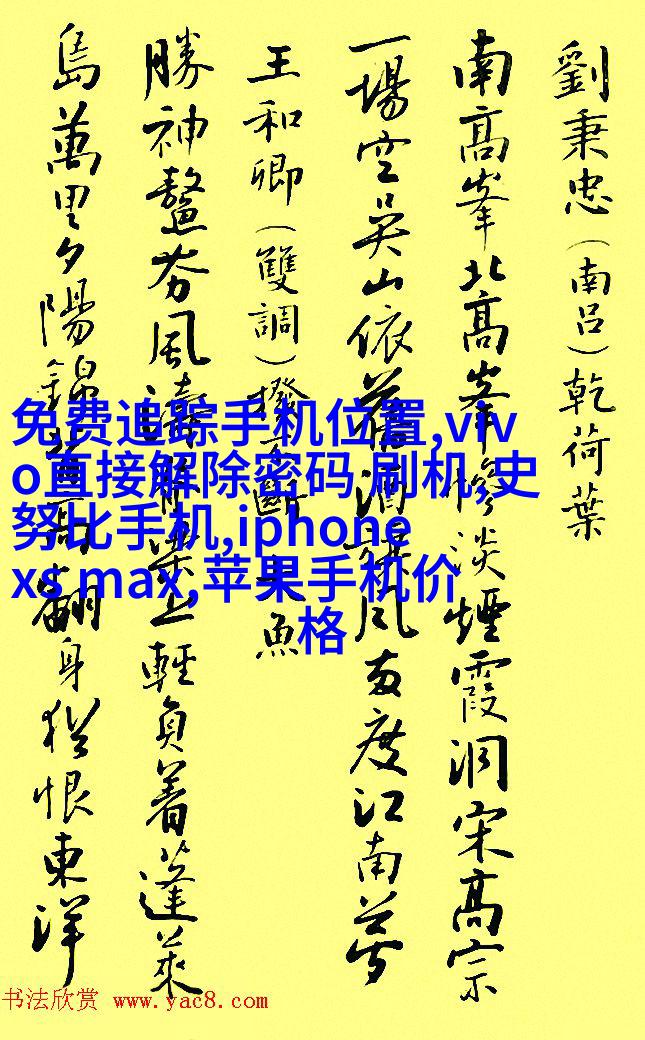 劉秉忠(南呂)乾荷葉
南高峯北高峯慘淡煙霞洞宋高宗
一場空吳山依舊酒旗風兩度江南夢
王和卿(雙調)撥不斷大魚
勝神鼇夯風濤脊梁上輕負着蓬萊
島萬里夕陽錦背高翻身猶恨東洋
免费追踪手机位置,viv
o直接解除密码 刷机,史
努比手机,iphone
xs max,苹果手机价
格
书法欣赏 www.yac8.com